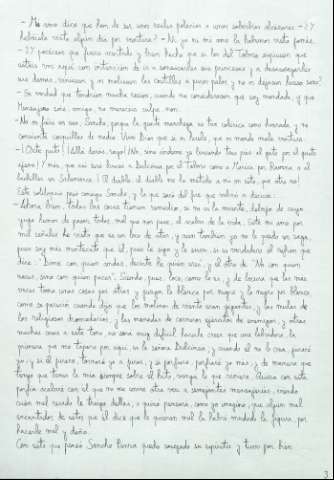 – Mi amo dice que han de ser unos reales palacios o unos soberbios alcázares. – ¿Y
habéisla visto algún día por ventura? – Ni yo ni mi amo la habemos visto jamás.
– ¿Y paréceos que fuera acertado y bien hecho que si los del Toboso supiesen que
estáis vos aquí con intención de ir a sonsacarles sus princesas y a desasosegarles
sus damas, viniesen y os moliesen las costillas a puros palos y no os dejasen hueso sano?
– En verdad que tendrían mucha razón, cuando no considerasen que soy mandado, y que
Mensajero sois, amigo, no merecéis culpa, non.
– No os fiéis en eso, Sancho, porque la gente manchega es tan colérica como honrada, y no
consiente cosquillas de nadie. Vive Dios que si os huele, que os mando mala ventura.
– ¡Oxte puto! ¡Allá darás, rayo! ¡No, sino ándome yo buscando tres pies al gato por el gusto
ajeno! Y más, que así será buscar a Dulcinea por el Toboso como a Marica por Ravena o al
bachiller en Salamanca. ¡El diablo, el diablo me ha metido a mí en esto, que otro no!
Este soliloquio pasó consigo Sancho, y lo que sacó del fue que volvió a decirse:
– Ahora bien, todas las cosas tienen remedio, si no es la muerte, debajo de cuyo
yugo hemos de pasar todos, mal que nos pese, al acabar de la vida. Este mi amo por
mil señales he visto que es un loco de atar, y aun también yo no le quedo en zaga,
pues soy más mentecato que él, pues le sigo y le sirvo, si es verdadero el refrán que
dice: "Dime con quién andas, decirte he quién eres", y el otro de "No con quien
naces, sino con quien paces". Siendo, pues, loco, como lo es, y de locura que las más
veces toma unas cosas por otras y juzga lo blanco por negro y lo negro por blanco,
como se pareció cuando dijo que los molinos de viento eran gigantes, y las mulas de
los religiosos dromedarios, y las manadas de carneros ejércitos de enemigos, y otras
muchas cosas a este tono, no será muy difícil hacerle creer que una labradora, la
primera que me topare por aquí, es la señora Dulcinea; y cuando él no lo crea, juraré
yo, y si él jurare, tornaré yo a jurar, y si porfiare, porfiaré yo más, y de manera que
tengo que tener la mía siempre sobre el hito, venga lo que viniere. Quizá con esta
porfía acabaré con él que no me envíe otra vez a semejantes mensajerías, viendo
cuán mal recado le traigo dellas, o quizá pensará, como yo imagino, que algún mal
encantador de estos que él dice que le quieren mal la habrá mudado la figura, por
hacerle mal y daño.
Con esto que pensó Sancho Panza quedó sosegado su espíritu y tuvo por bien
3